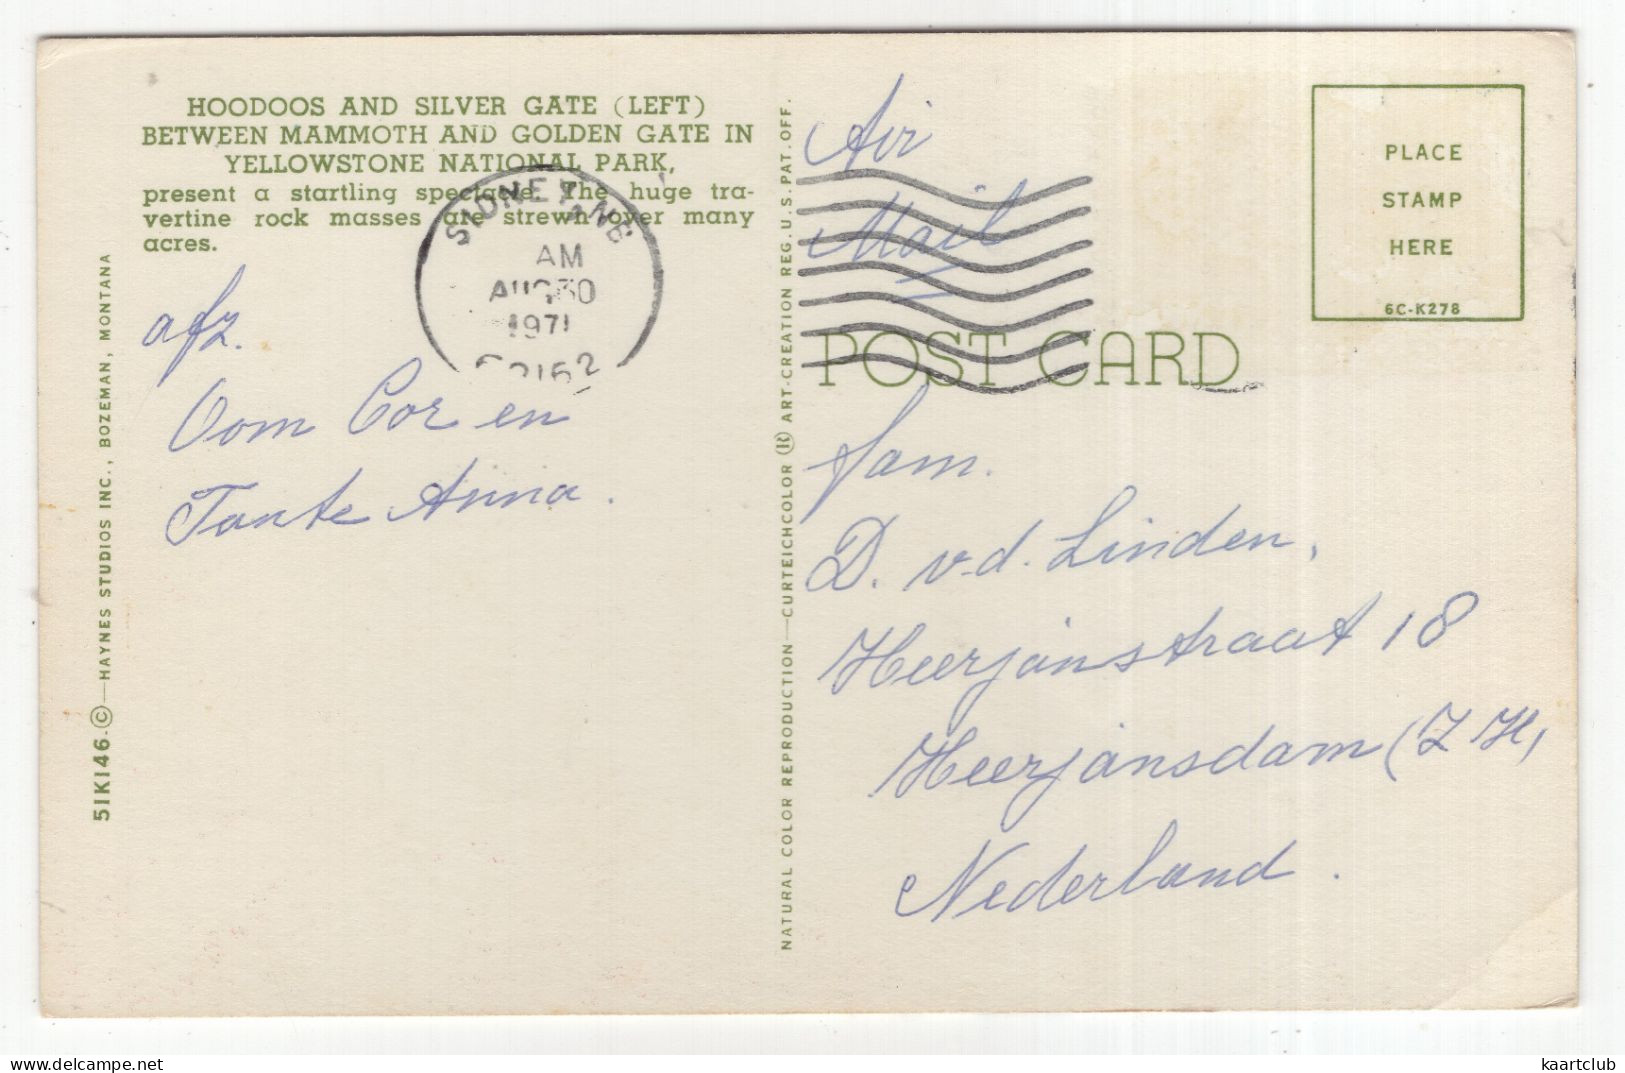 HOODOOS AND SILVER GATE (LEFT)
BETWEEN MAMMOTH AND GOLDEN GATE IN
YELLOWSTONE NATIONAL PARK,
present a startling spectacle. The huge tra-
vertine rock masses are strewn over many
acres.
SIDNEY, NE
AM
AUG 30
1971
afz.
Oom Cor en
Tante Anna.
51K146 ©—HAYNES STUDIOS INC., BOZEMAN, MONTANA
NATURAL COLOR REPRODUCTION—CURTEICHCOLOR ® ART-CREATION REG. U.S. PAT. OFF.
Air
Mail
PLACE
STAMP
HERE
6C-K278
POST CARD
fam.
D. v.d. Linden,
Heerjansstraat 18
Heerjansdam (Z H,
Nederland.
delcampe.net
kaartclub